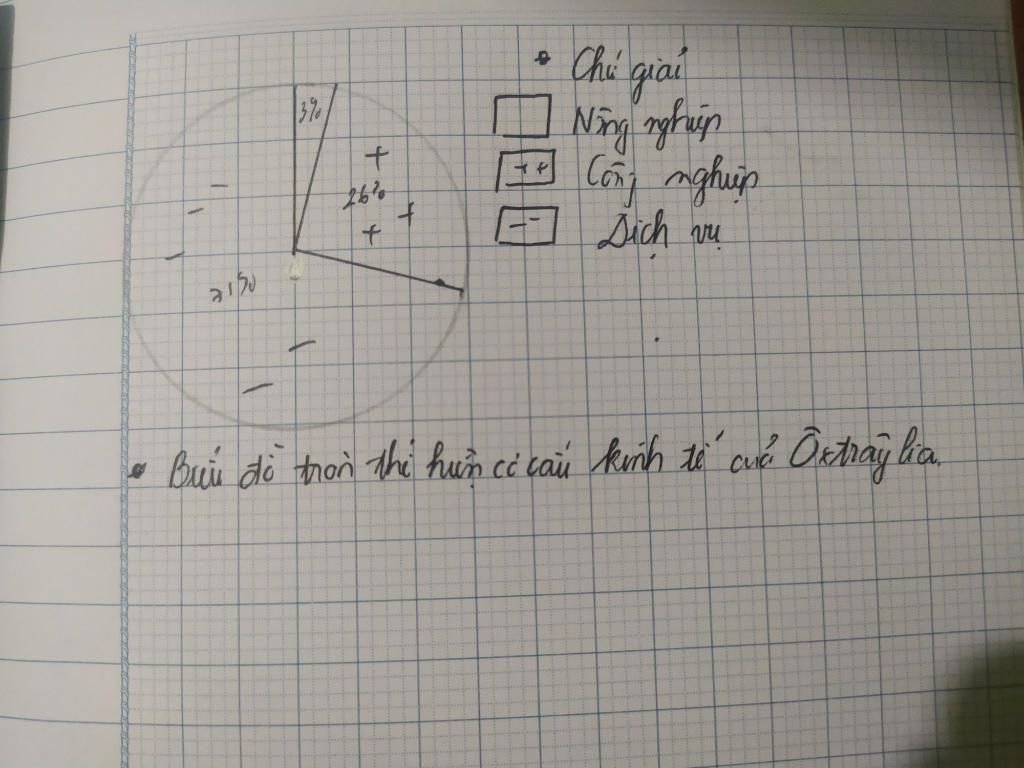 • Chú giải
3%
Nông nghiệp
++ Công nghiệp
26%
-- Dịch vụ
71%
• Biểu đồ tròn thể hiện cơ cấu kinh tế của Ôxtrâylia.